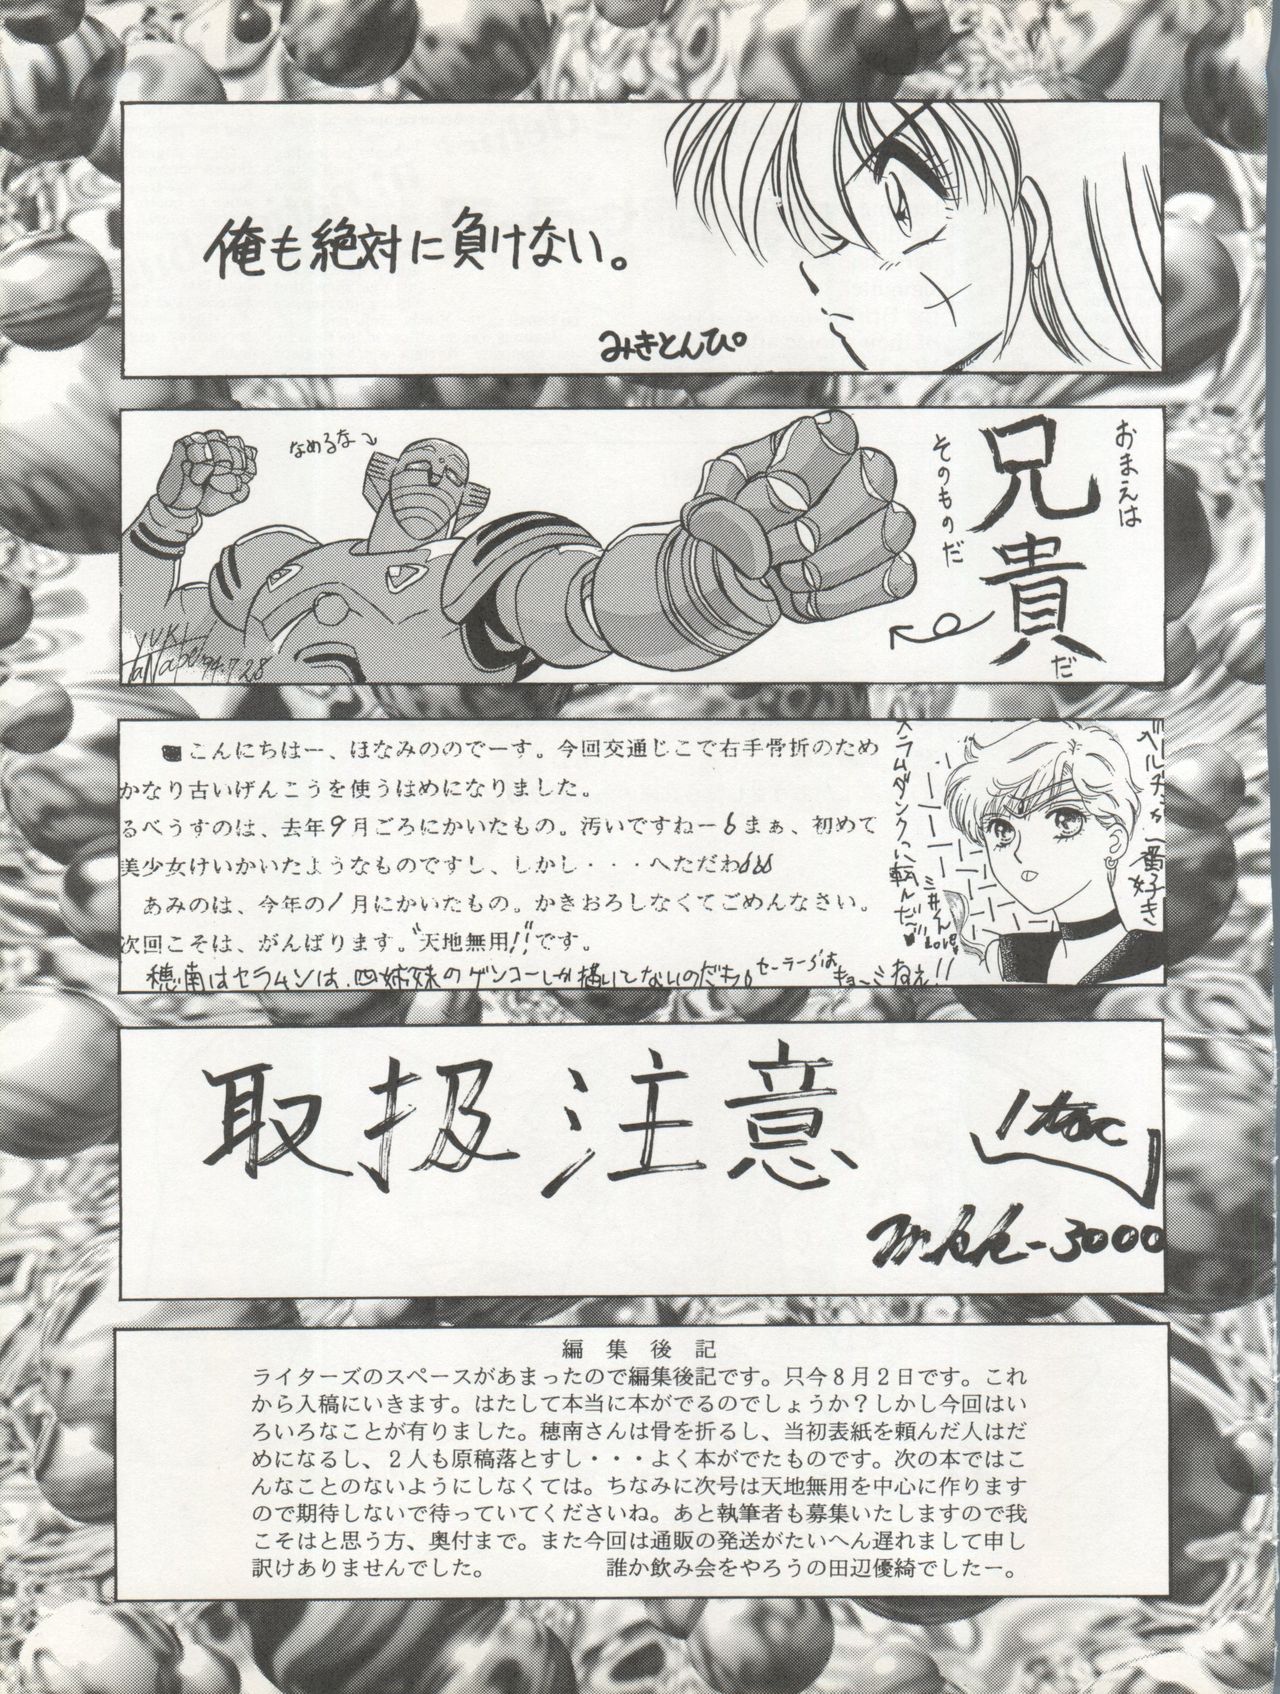 俺も絶対に負けない。
みきとんぴ。
おまえは
兄貴だ
そのものだ
なめるな
YUKI
TaNaBe '94.7.28
こんにちはー、ほなみののでーす。今回交通じこで右手骨折のため
かなり古いげんこうを使うはめになりました。
るべうすのは、去年9月ごろにかいたもの。汚いですねー まぁ、初めて
美少女けいかいたようなものですし、しかし・・・へただわ
あみのは、今年の1月にかいたもの。かきおろしなくてごめんなさい。
次回こそは、がんばります。"天地無用!!"です。
穂南はセラムンは、四姉妹のゲンコーしか描いてないのだわ。セーラー5はキョーミねえ!!
ベルチェが一番好き
スラムダンクに転んだ
三井くん
Love
取扱注意
mkk-3000
編集後記
ライターズのスペースがあまったので編集後記です。只今8月2日です。これ
から入稿にいきます。はたして本当に本がでるのでしょうか?しかし今回はい
ろいろなことが有りました。穂南さんは骨を折るし、当初表紙を頼んだ人はだ
めになるし、2人も原稿落とすし・・・よく本がでたものです。次の本ではこ
んなことのないようにしなくては。ちなみに次号は天地無用を中心に作ります
ので期待しないで待っていてくださいね。あと執筆者も募集いたしますので我
こそはと思う方、奥付まで。また今回は通販の発送がたいへん遅れまして申し
訳けありませんでした。　　　　　誰か飲み会をやろうの田辺優綺でしたー。